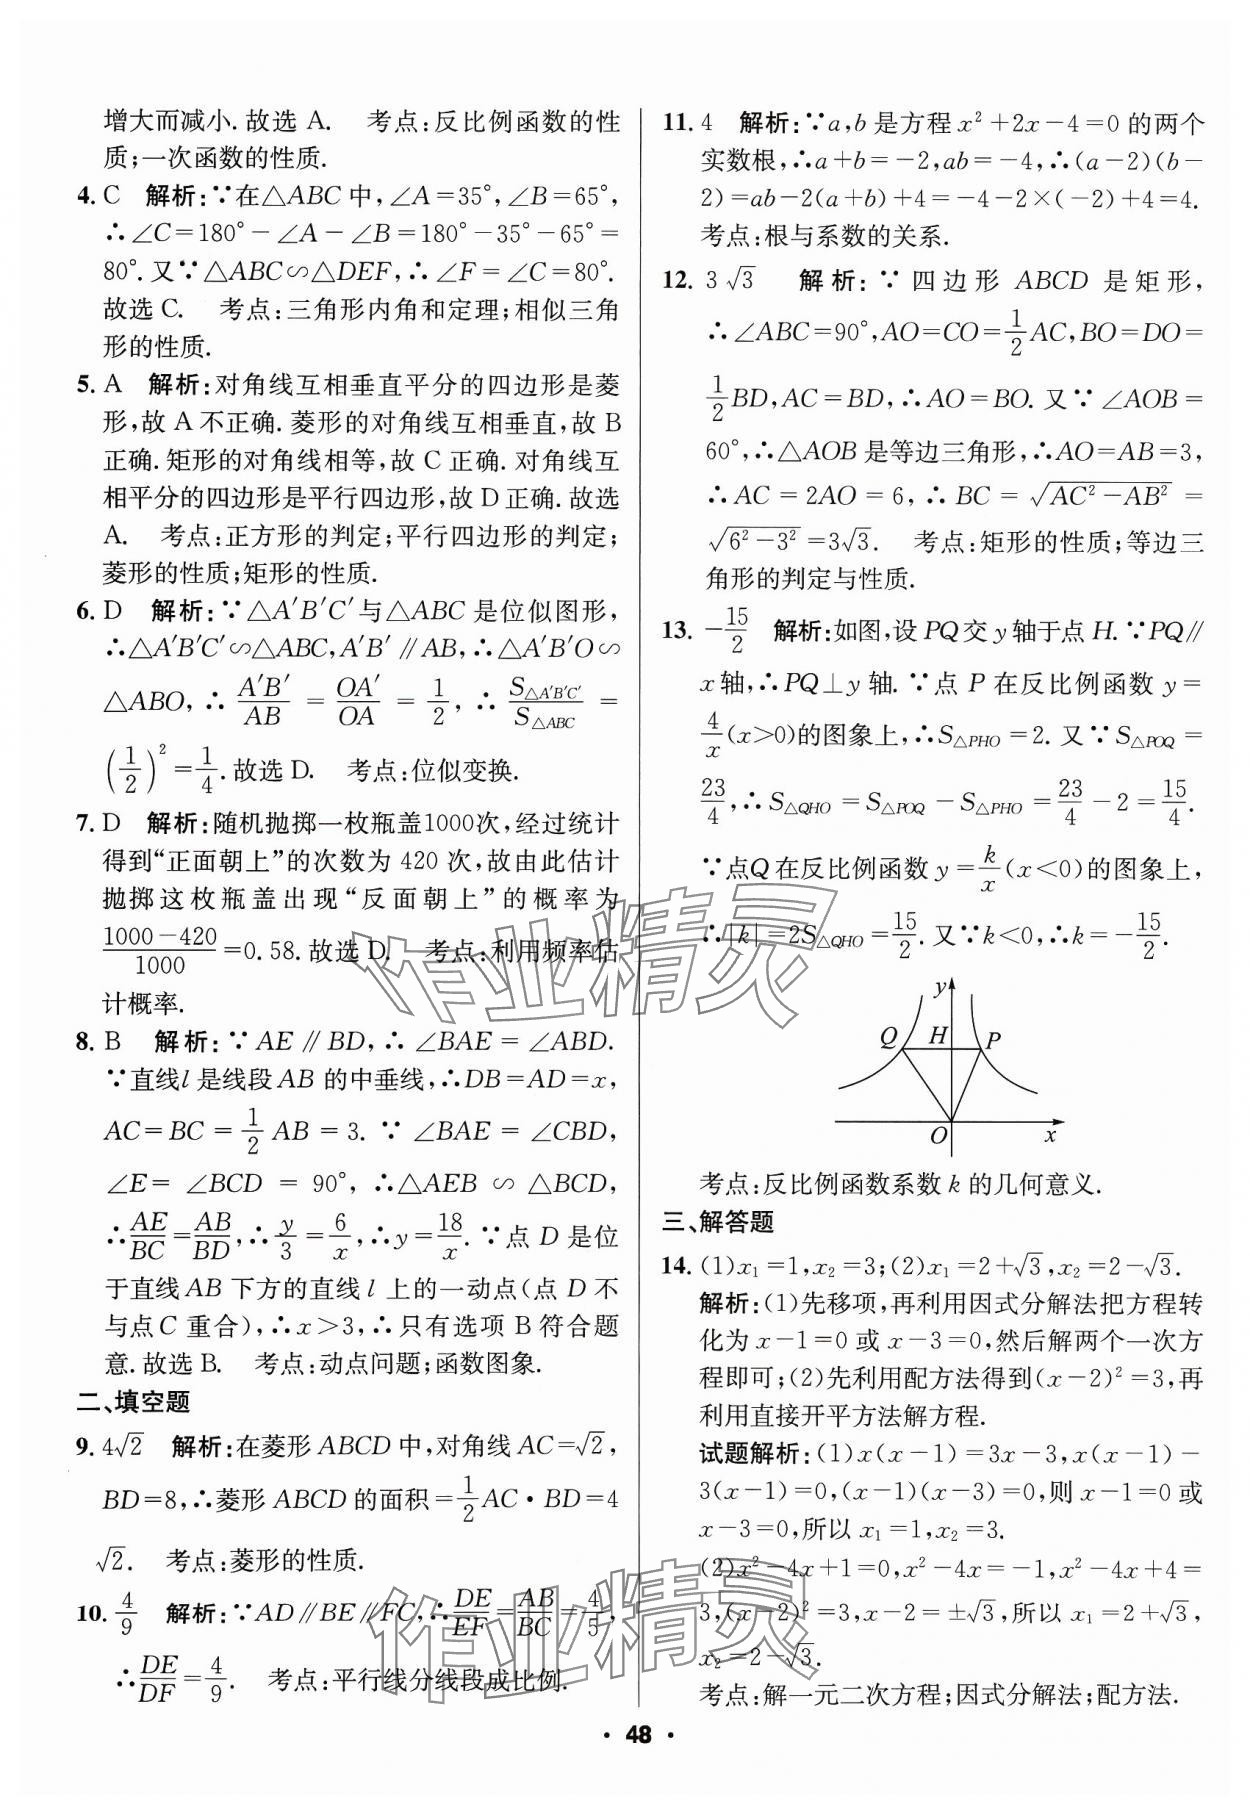 增大而减小.故选 A.　考点:反比例函数的性
质;一次函数的性质.
4. C　解析:∵在△ABC 中,∠A=35°,∠B=65°,
∴∠C=180°-∠A-∠B=180°-35°-65°=
80°.又∵△ABC∽△DEF,∴∠F=∠C=80°.
故选 C.　考点:三角形内角和定理;相似三角
形的性质.
5. A　解析:对角线互相垂直平分的四边形是菱
形,故 A 不正确.菱形的对角线互相垂直,故 B
正确.矩形的对角线相等,故 C 正确.对角线互
相平分的四边形是平行四边形,故 D 正确.故选
A.　考点:正方形的判定;平行四边形的判定;
菱形的性质;矩形的性质.
6. D　解析:∵△A′B′C′与△ABC 是位似图形,
∴△A′B′C′∽△ABC,A′B′∥AB,∴△A′B′O∽
△ABO,∴A′B′/AB=OA′/OA=1/2,∴S△A′B′C′/S△ABC=
(1/2)²=1/4.故选 D.　考点:位似变换.
7. D　解析:随机抛掷一枚瓶盖1000次,经过统计
得到“正面朝上”的次数为 420 次,故由此估计
抛掷这枚瓶盖出现“反面朝上”的概率为
(1000-420)/1000=0.58.故选 D.　考点:利用频率估
计概率.
8. B　解析:∵AE∥BD,∴∠BAE=∠ABD.
∵直线l 是线段 AB 的中垂线,∴DB=AD=x,
AC=BC=1/2 AB=3.∵∠BAE=∠CBD,
∠E=∠BCD=90°,∴△AEB∽△BCD,
∴AE/BC=AB/BD,∴y/3=6/x,∴y=18/x.∵点 D 是位
于直线 AB 下方的直线 l 上的一动点(点 D 不
与点 C 重合),∴x>3,∴只有选项 B 符合题
意.故选 B.　考点:动点问题;函数图象.
二、填空题
9. 4√2　解析:在菱形 ABCD 中,对角线 AC=√2,
BD=8,∴菱形 ABCD 的面积=1/2 AC·BD=4
√2.　考点:菱形的性质.
10. 4/9　解析:∵AD∥BE∥FC,∴DE/EF=AB/BC=4/5,
∴DE/DF=4/9.　考点:平行线分线段成比例.
11. 4　解析:∵a,b 是方程 x²+2x-4=0 的两个
实数根,∴a+b=-2,ab=-4,∴(a-2)(b-
2)=ab-2(a+b)+4=-4-2×(-2)+4=4.
考点:根与系数的关系.
12. 3√3　解析:∵四边形 ABCD 是矩形,
∴∠ABC=90°,AO=CO=1/2 AC,BO=DO=
1/2 BD,AC=BD,∴AO=BO.又∵∠AOB=
60°,∴△AOB 是等边三角形,∴AO=AB=3,
∴AC=2AO=6,∴BC=√(AC²-AB²)=
√(6²-3²)=3√3.　考点:矩形的性质;等边三
角形的判定与性质.
13. -15/2　解析:如图,设 PQ 交 y 轴于点 H.∵PQ∥
x 轴,∴PQ⊥y 轴.∵点 P 在反比例函数 y=
4/x(x>0)的图象上,∴S△PHO=2.又∵S△POQ=
23/4,∴S△QHO=S△POQ-S△PHO=23/4-2=15/4.
∵点Q 在反比例函数 y=k/x(x<0)的图象上,
∴|k|=2S△QHO=15/2.又∵k<0,∴k=-15/2.
y
Q H P
O x
考点:反比例函数系数 k 的几何意义.
三、解答题
14. (1)x₁=1,x₂=3;(2)x₁=2+√3,x₂=2-√3.
解析:(1)先移项,再利用因式分解法把方程转
化为 x-1=0 或 x-3=0,然后解两个一次方
程即可;(2)先利用配方法得到(x-2)²=3,再
利用直接开平方法解方程.
试题解析:(1)x(x-1)=3x-3,x(x-1)-
3(x-1)=0,(x-1)(x-3)=0,则 x-1=0 或
x-3=0,所以 x₁=1,x₂=3.
(2)x²-4x+1=0,x²-4x=-1,x²-4x+4=
3,(x-2)²=3,x-2=±√3,所以 x₁=2+√3,
x₂=2-√3.
考点:解一元二次方程;因式分解法;配方法.
· 48 ·
作业精灵
作业精灵